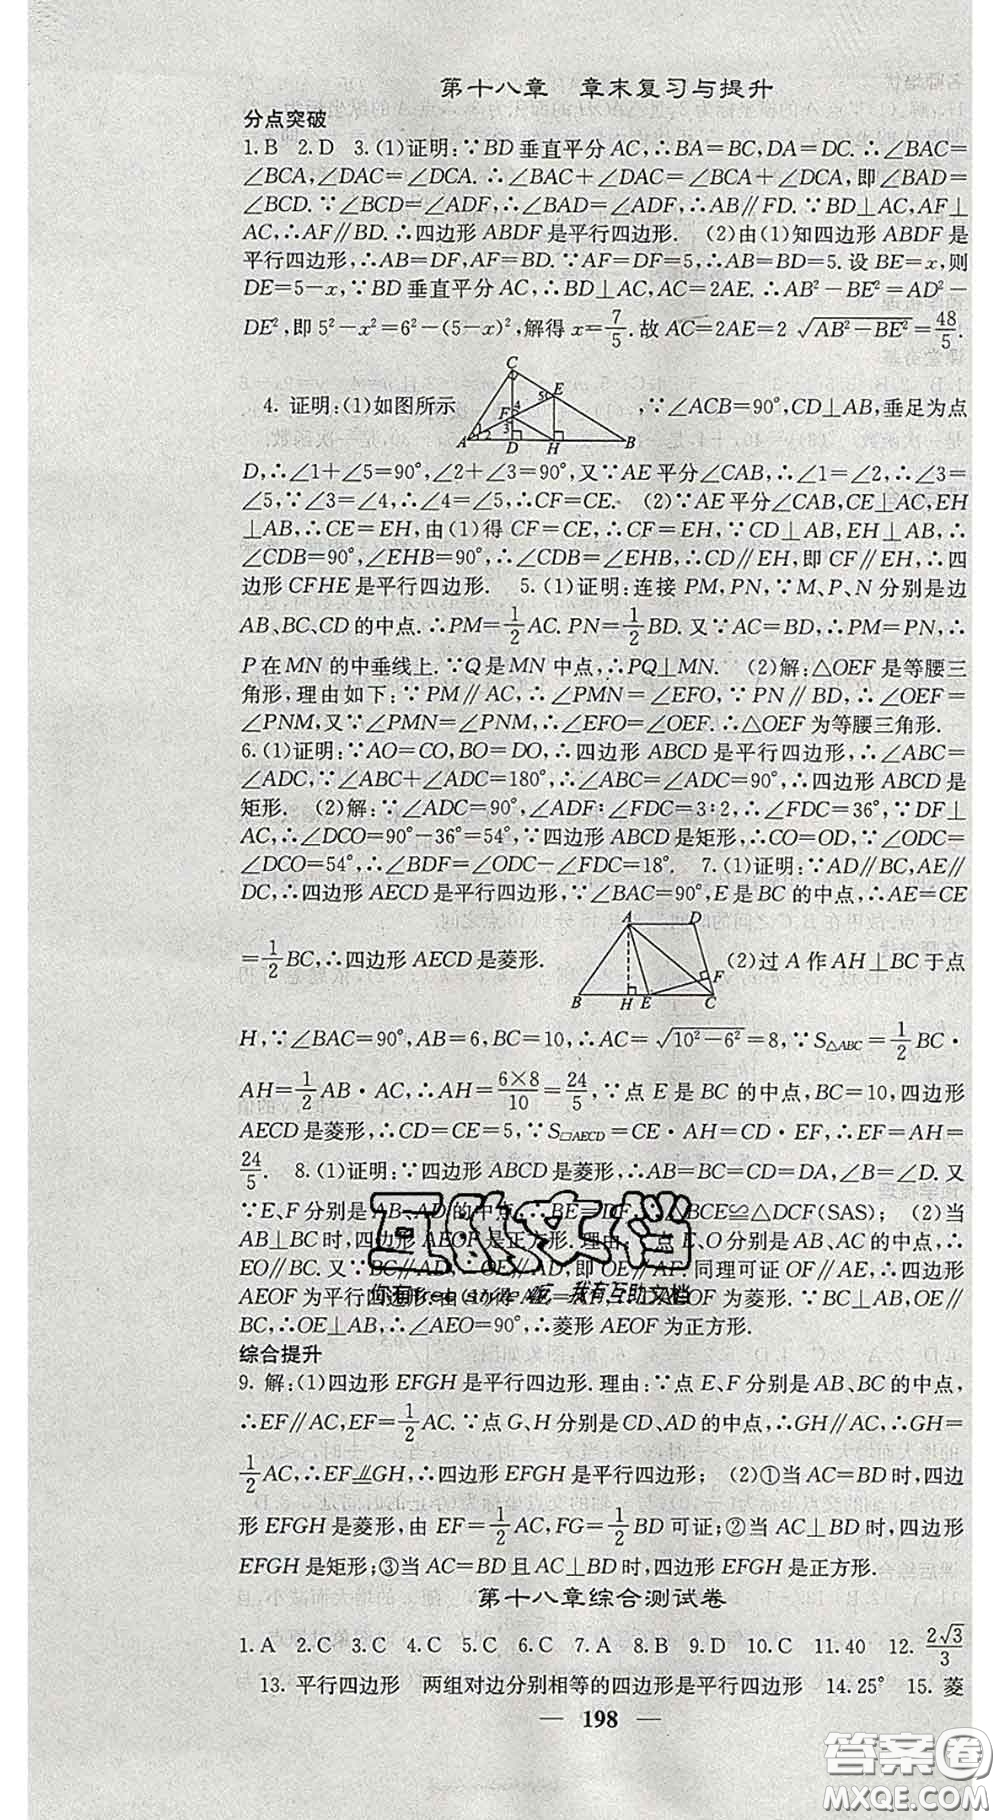 第十八章　章末复习与提升
分点突破
1.B 2.D 3.(1)证明:∵BD垂直平分AC,∴BA=BC,DA=DC.∴∠BAC=
∠BCA,∠DAC=∠DCA.∴∠BAC+∠DAC=∠BCA+∠DCA,即∠BAD=
∠BCD.∵∠BCD=∠ADF,∴∠BAD=∠ADF,∴AB∥FD.∵BD⊥AC,AF⊥
AC,∴AF∥BD.∴四边形ABDF是平行四边形. (2)由(1)知四边形ABDF是
平行四边形,∴AB=DF,AF=BD.∵AF=DF=5,∴AB=BD=5.设BE=x,则
DE=5-x,∵BD垂直平分AC,∴BD⊥AC,AC=2AE.∴AB²-BE²=AD²-
DE²,即5²-x²=6²-(5-x)²,解得x=7/5.故AC=2AE=2√(AB²-BE²)=48/5.
4.证明:(1)如图所示 C E 5 4 F 3 1 2 A D H B ,∵∠ACB=90°,CD⊥AB,垂足为点
D,∴∠1+∠5=90°,∠2+∠3=90°,又∵AE平分∠CAB,∴∠1=∠2,∴∠3=
∠5,∵∠3=∠4,∴∠4=∠5,∴CF=CE. (2)∵AE平分∠CAB,CE⊥AC,EH
⊥AB,∴CE=EH,由(1)得CF=CE,∴CF=EH,∵CD⊥AB,EH⊥AB,∴
∠CDB=90°,∠EHB=90°,∴∠CDB=∠EHB,∴CD∥EH,即CF∥EH,∴四
边形CFHE是平行四边形. 5.(1)证明:连接PM,PN,∵M、P、N分别是边
AB、BC、CD的中点.∴PM=1/2AC.PN=1/2BD.又∵AC=BD,∴PM=PN,∴
P在MN的中垂线上.∵Q是MN中点,∴PQ⊥MN. (2)解:△OEF是等腰三
角形,理由如下:∵PM∥AC,∴∠PMN=∠EFO,∵PN∥BD,∴∠OEF=
∠PNM,又∵∠PMN=∠PNM,∴∠EFO=∠OEF.∴△OEF为等腰三角形.
6.(1)证明:∵AO=CO,BO=DO,∴四边形ABCD是平行四边形,∴∠ABC=
∠ADC,∵∠ABC+∠ADC=180°,∴∠ABC=∠ADC=90°,∴四边形ABCD是
矩形. (2)解:∵∠ADC=90°,∠ADF∶∠FDC=3∶2,∴∠FDC=36°,∵DF⊥
AC,∴∠DCO=90°-36°=54°,∵四边形ABCD是矩形,∴CO=OD,∴∠ODC=
∠DCO=54°,∴∠BDF=∠ODC-∠FDC=18°. 7.(1)证明:∵AD∥BC,AE∥
DC,∴四边形AECD是平行四边形,∵∠BAC=90°,E是BC的中点,∴AE=CE
=1/2BC,∴四边形AECD是菱形. A D F B H E C (2)过A作AH⊥BC于点
H,∵∠BAC=90°,AB=6,BC=10,∴AC=√(10²-6²)=8,∵S△ABC=1/2BC·
AH=1/2AB·AC,∴AH=6×8/10=24/5,∵点E是BC的中点,BC=10,四边形
AECD是菱形,∴CD=CE=5,∵S□AECD=CE·AH=CD·EF,∴EF=AH=
24/5. 8.(1)证明:∵四边形ABCD是菱形,∴AB=BC=CD=DA,∠B=∠D.又
∵E、F分别是AB、AD的中点,∴BE=DF,∴△BCE≌△DCF(SAS); (2)当
AB⊥BC时,四边形AEOF是正方形.理由:∵点E、O分别是AB、AC的中点,∴
EO∥BC.又∵BC∥AD,∴OE∥AD,即OE∥AF.同理可证OF∥AE,∴四边形
AEOF为平行四边形.由(1)得AE=AF,∴□AEOF为菱形.∵BC⊥AB,OE∥
BC,∴OE⊥AB,∴∠AEO=90°,∴菱形AEOF为正方形.
互助文档
综合提升
9.解:(1)四边形EFGH是平行四边形.理由:∵点E、F分别是AB、BC的中点,
∴EF∥AC,EF=1/2AC.∵点G、H分别是CD、AD的中点,∴GH∥AC,∴GH=
1/2AC,∴EF∥=GH,∴四边形EFGH是平行四边形; (2)①当AC=BD时,四边
形EFGH是菱形,由EF=1/2AC,FG=1/2BD可证;②当AC⊥BD时,四边形
EFGH是矩形;③当AC=BD且AC⊥BD时,四边形EFGH是正方形.
第十八章综合测试卷
1.A 2.C 3.C 4.C 5.C 6.C 7.A 8.B 9.D 10.C 11.40 12.2√3/3
13.平行四边形 两组对边分别相等的四边形是平行四边形 14.25° 15.菱
— 198 —
答案圈
MXQE.COM